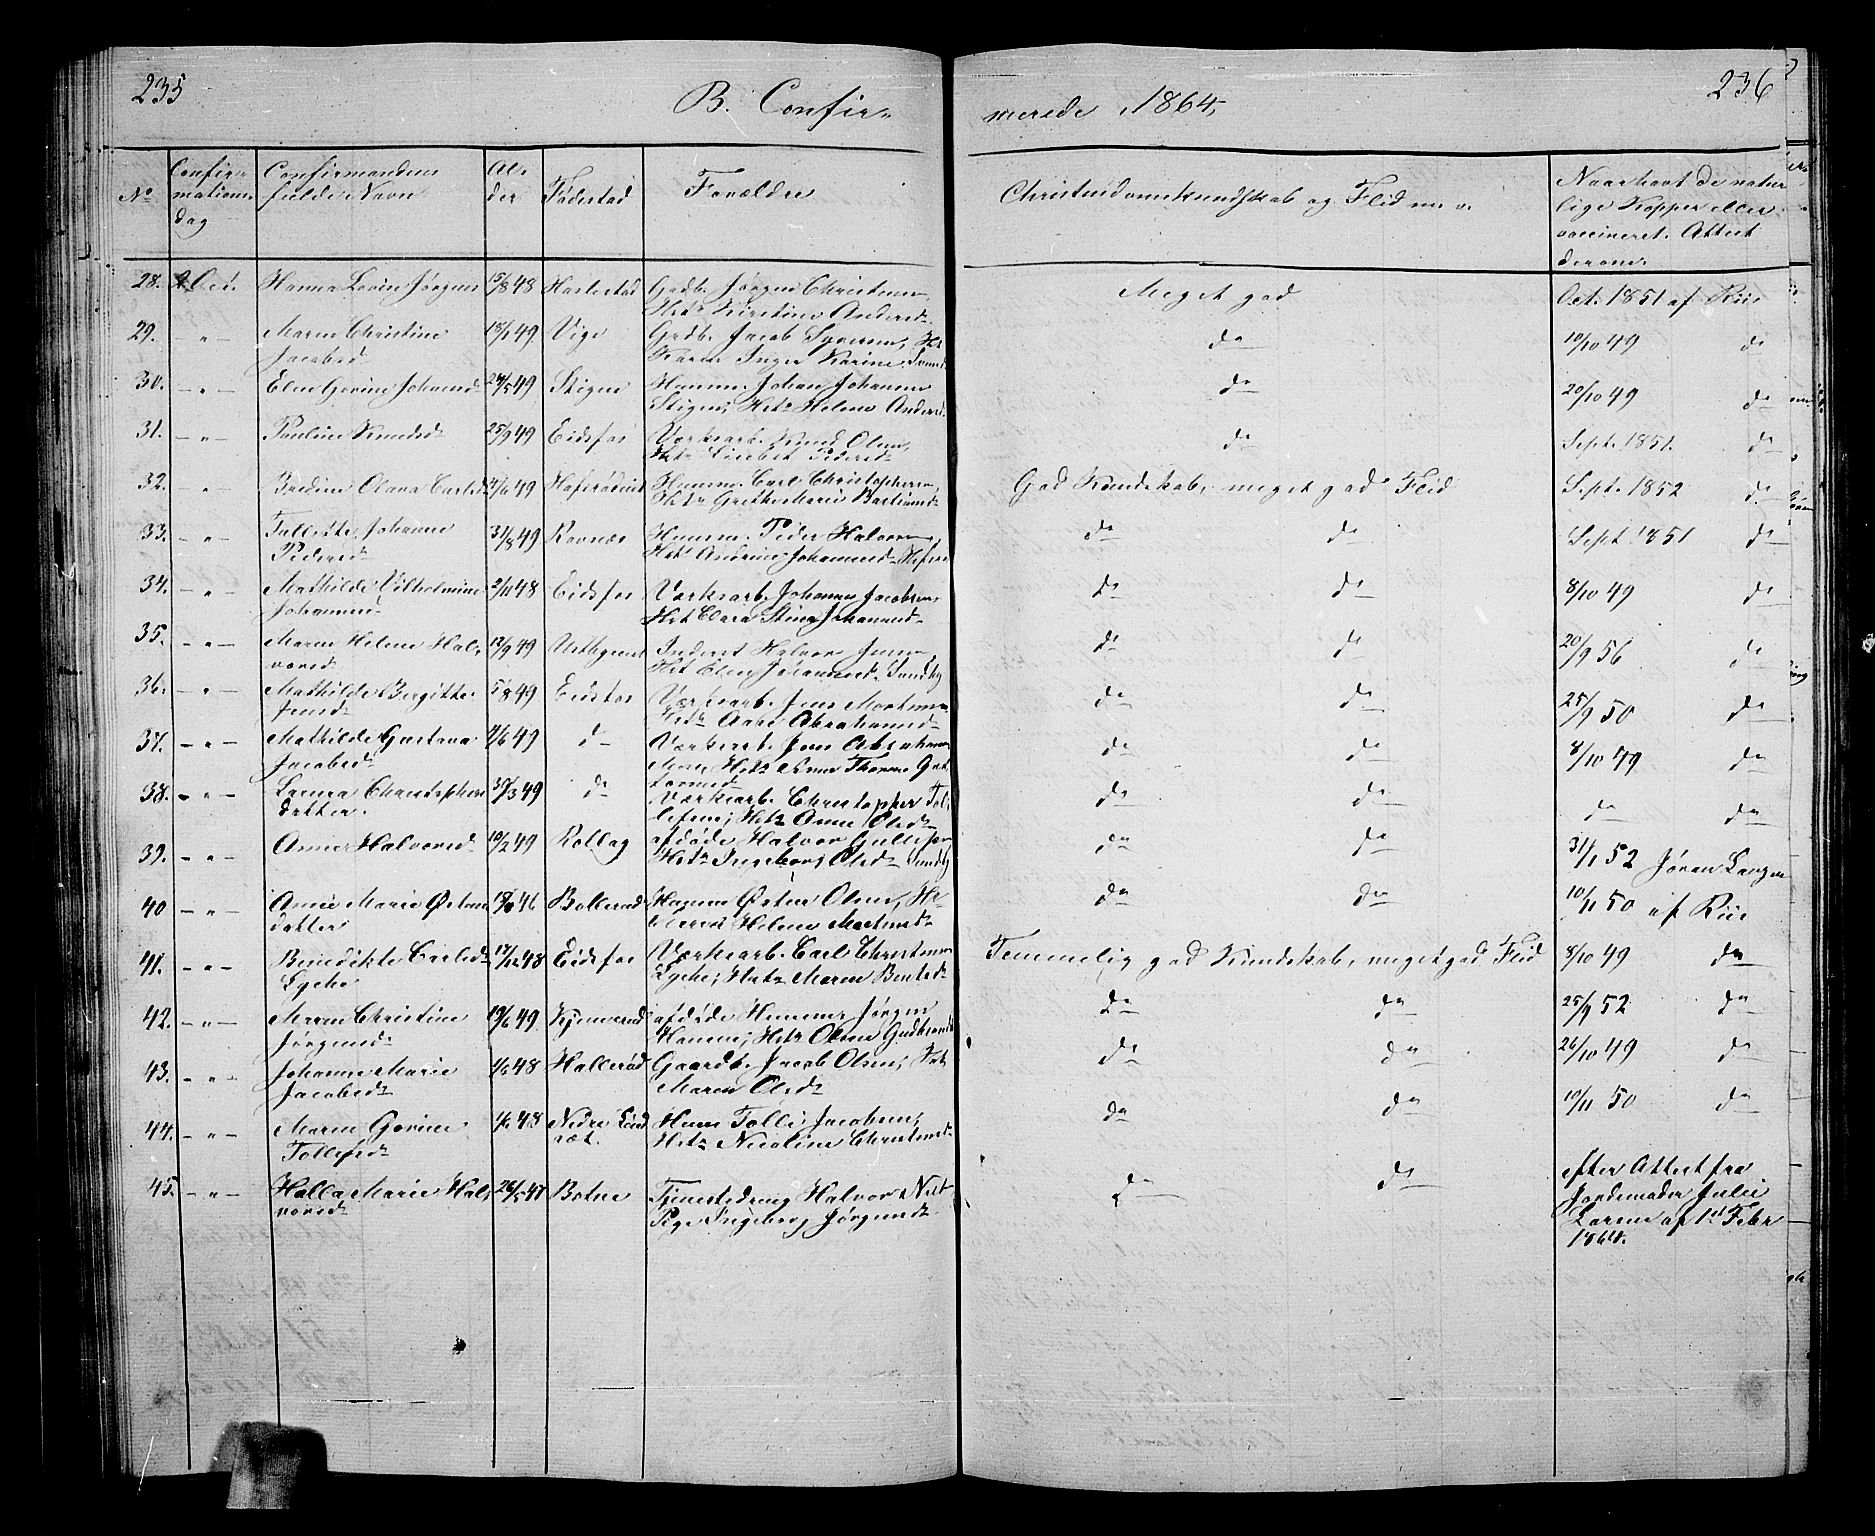 235
B. Confir-
No
Confir-
mations
dag
Confirmandens
fulde Navn
Al-
der
Fødested
Forældre
28. 2 Oct. Hanna Lovise Jørgens 15/8 48 Haslestad Gaardb. Jørgen Christensen,
Hst. Kirstine Andersd.
29. - " - Maren Christine 18/1 49 Vige Grdb. Jacob Syversen, H.
Jacobsd. Karen Inger Karine
30. - " - Elen Gorine Johansd. 24/5 49 Stigen Huusm. Johan Johannes
Stigen, Hst. Helene Andersd.
31. - " - Pauline Knudsd. 25/9 49 Eidsfos Værksarb. Knud Olsen,
Hst. Lisebet Pedersd.
32. " Bredine Olava Carlsd. /6 49 Huusm. Carl Christophersen,
Hst. Grethe Marie Bastiansd.
33. - " - Johanne 31/8 49 Ravnæs Huusm. Peder Halvorsen,
Pedersd. Hst. Andrine Johannesd.
34. - " - Mathilde Vilhelmine 2/11 48 Eidsfos Værksarb. Johannes Jacobsen,
Johannesd. Hst Clara Stine Johannesd.
35. - " - Maren Helene Hal- 12/9 49 Inderst Halvor Jensen,
vorsd. Hst Elen Johannesd. Sundby
36. - " - Mathilde Bergitte 5/8 49 Eidsfos Værksarb. Jens Mortensen
Jensd. Hst. Anne Abrahamsd.
37. - " - Mathilde Gustava /6 49 d Værksarb. Jens
Jacobsd. Hst.
38. - " - Laura Christopher- 30/3 49 do Værksarb. Christopher Tol-
datter. lefsen, Hst. Anne Olsd.
39. - " - Anne Halvorsd. 10/2 49 Rollag afdøde Halvor Gullifsen
Hst. Ingeborg Olsd. Sundby
40 - " - Anne Marie Østens 46 Bollerud Huusm Østen Olsen, H.
datter Helene Mortensd.
41. - " - Benedikte Carlsd. 17/12 48 Eidsfos Værksarb. Carl Christensen
Lyche Lyche, Hst. Maren Bentsd.
42. - " - Maren Christine 19/6 49. afdøde Huusm. Jørgen
Jørgensd. Hansen, Hst. Olene Gudbrandsd
43. - " - Johanne Marie 1/6 48 Hallerød Gaardb. Jacob Olsen, Hst.
Jacobsd. Maren Olsd.
44. - " - Maren Gorine 48 Nedre Huusm Tolle Jacobsen,
Tollefsd. Hst. Nicoline Christensd.
45. - " - Halla Marie Hal- 26/5 47 Botne Tjenestedreng Halvor Nils
vorsd. Pige Ingeborg Jørgensd.
236
merede 1864,
Christendomskundskab og Flid m. v.
Naar havt de natur
lige Kopper eller
vaccineret. Attest
derom.
Meget god Oct. 1851 af Riis
do 10/10 49 do
do 20/10 49 do
do Sept. 1851. do
God Kundskab, meget god Flid Sept. 1852 do
do do Sept 1851 do
do do 8/10 49 do
do do 20/9 56 do
do do 25/9 50 do
do do 8/10 49 do
do do do do
do do 31/1 52 Jøran Langen
do do 10/11 50 af Riis
Temmelig god Kundskab, meget god Flid 8/10 49 do
do do 25/9 52 do
do do 26/10 49 do
do do 10/11 50 do
do do efter Attest fra
Jordemoder Julie
Larsen af 1st Febr
1864.